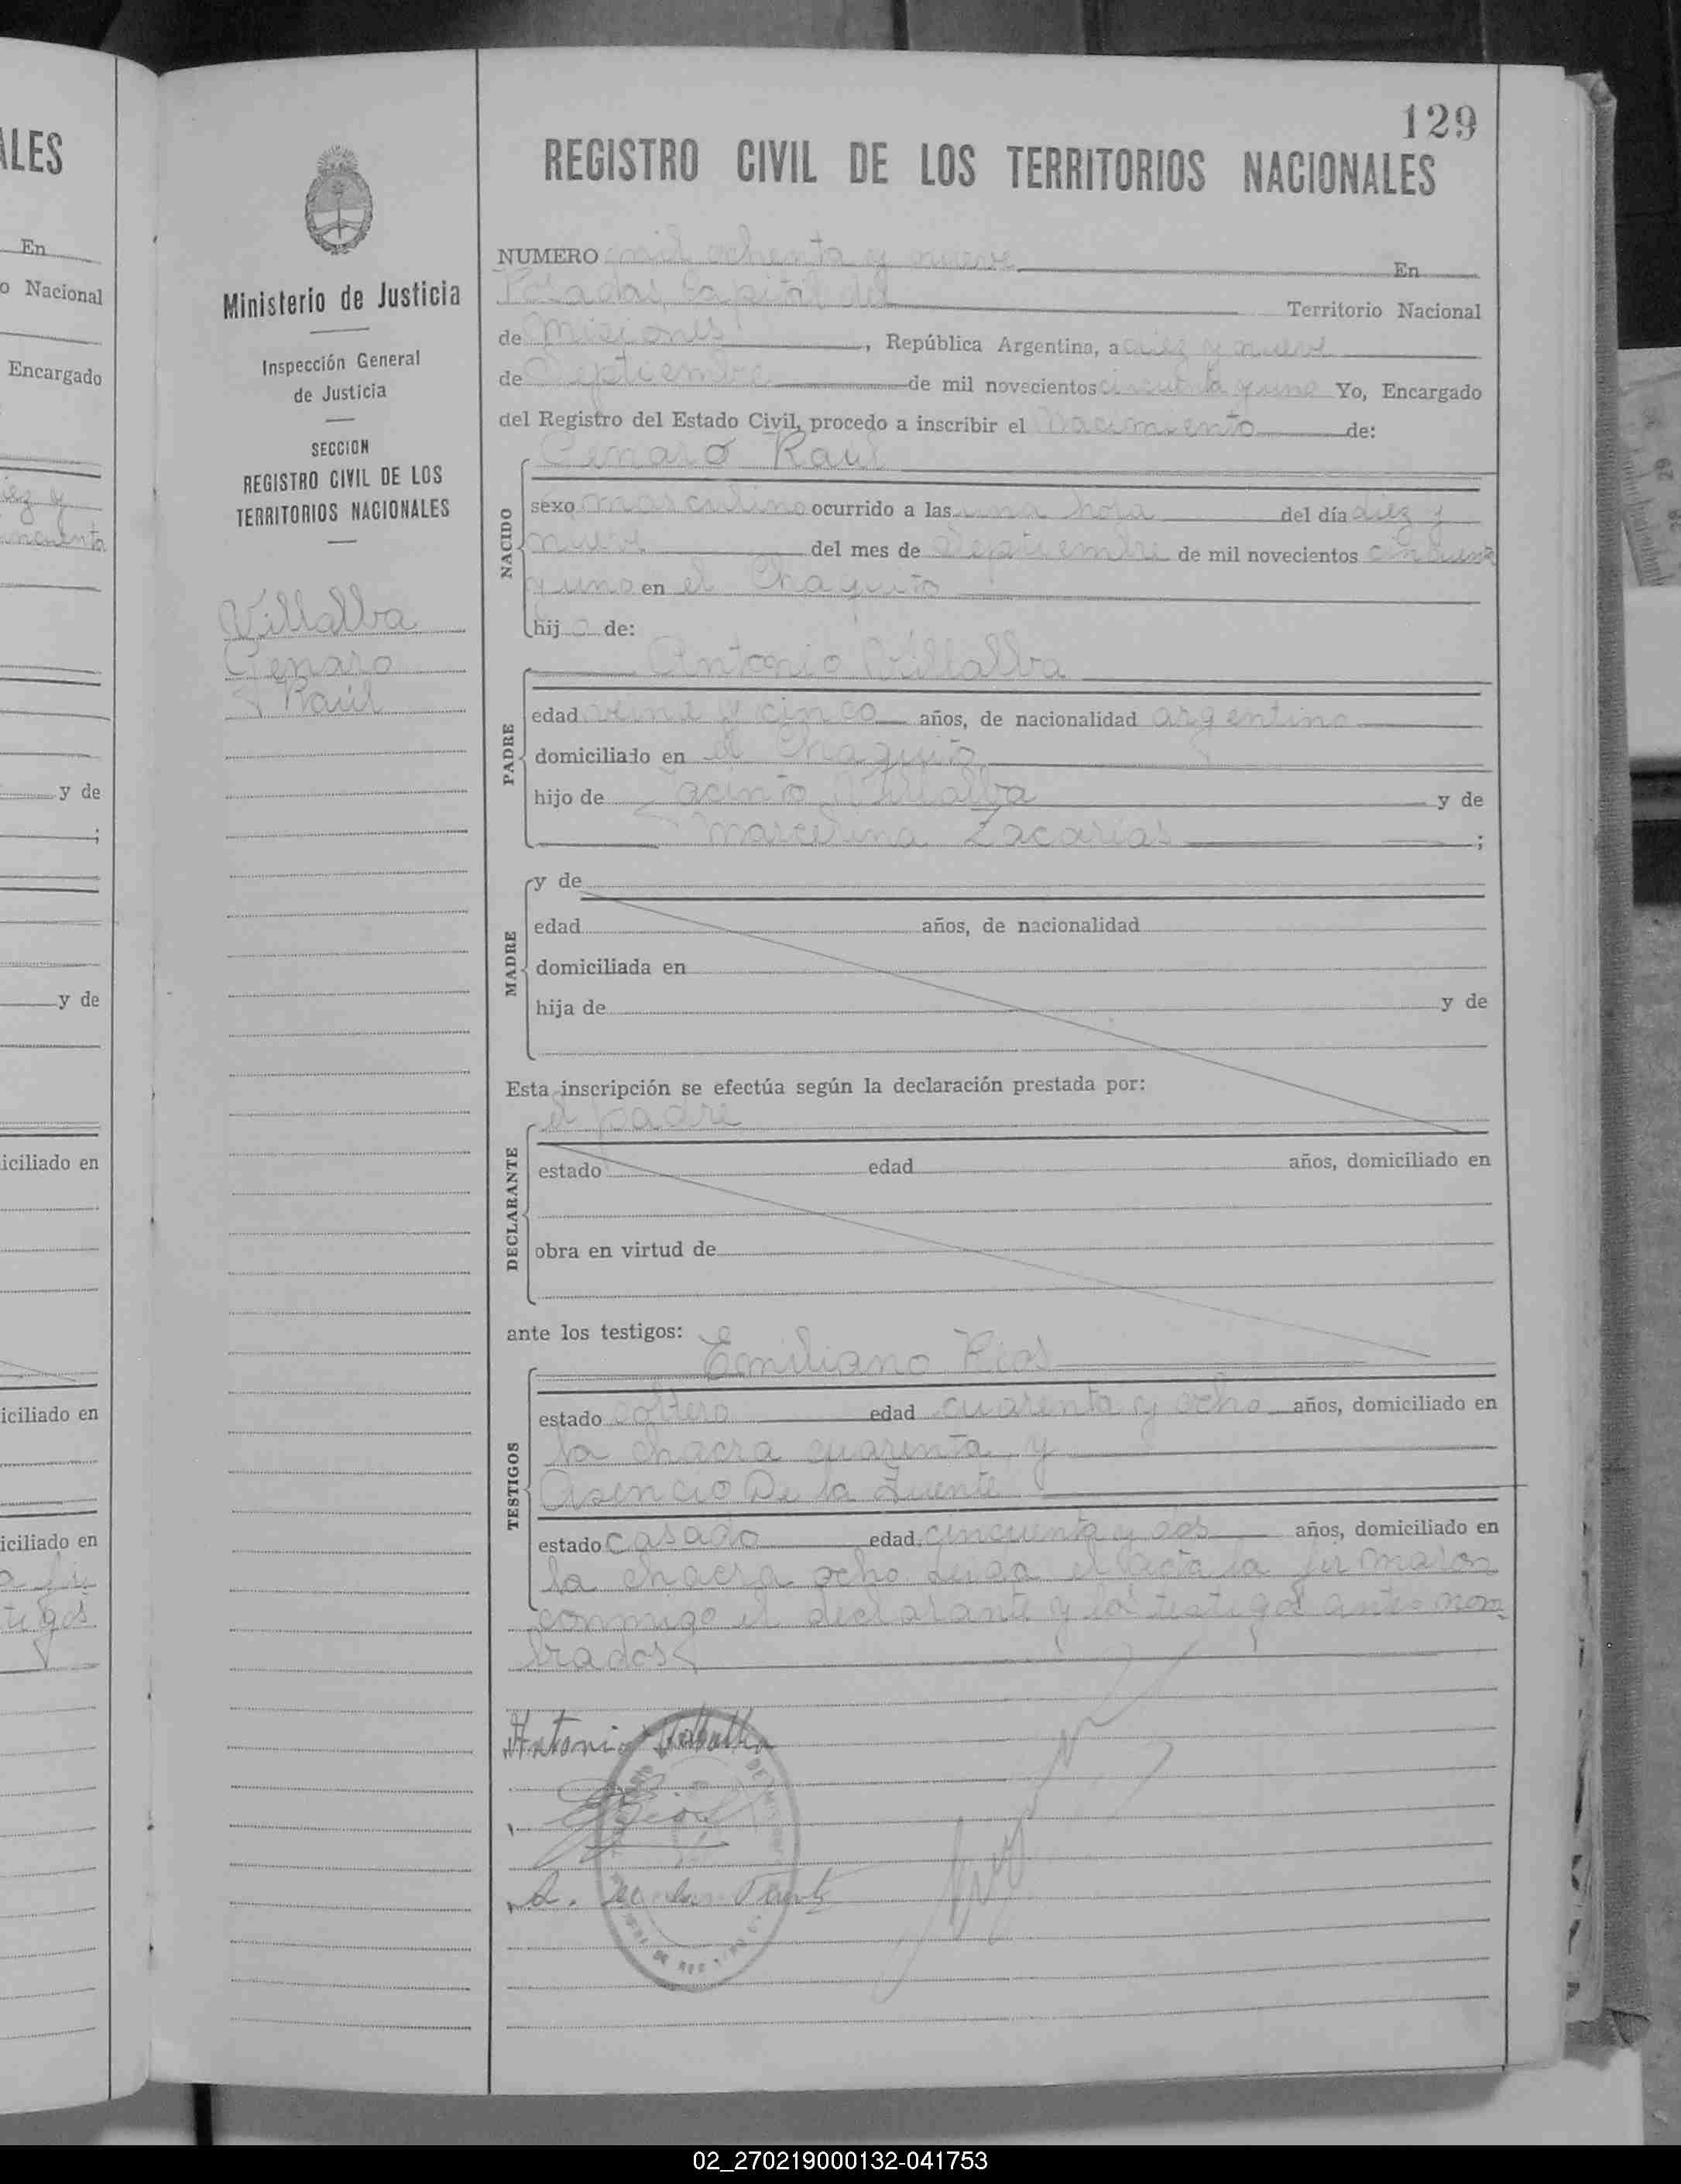 129
REGISTRO CIVIL DE LOS TERRITORIOS NACIONALES
NUMERO mil ochenta y nueve En
Posadas, Capital del Territorio Nacional
de Misiones, República Argentina, a diez y nueve
de Septiembre de mil novecientos cincuenta y uno Yo, Encargado
del Registro del Estado Civil, procedo a inscribir el nacimiento de:
Genaro Raúl
NACIDO
sexo masculino ocurrido a las una hora del día diez y
nueve del mes de Septiembre de mil novecientos cincuenta
y uno en el Chaquito
hijo de:
Antonio Villalba
PADRE
edad veinte y cinco años, de nacionalidad argentino
domiciliado en el Chaquito
hijo de Jacinto Villalba y de
Marcelina Zacarias ;
MADRE
y de
edad años, de nacionalidad
domiciliada en
hija de y de
Esta inscripción se efectúa según la declaración prestada por:
el padre
DECLARANTE
estado edad años, domiciliado en
obra en virtud de
ante los testigos:
Emiliano Rios
TESTIGOS
estado soltero edad cuarenta y ocho años, domiciliado en
la chacra cuarenta y
Asencio De la Fuente
estado casado edad cincuenta y dos años, domiciliado en
la chacra ocho. Leida el acta la firmaron
conmigo el declarante y los testigos antes nom
brados
Antonio Villalba
A. de la Fuente
Ministerio de Justicia
Inspección General
de Justicia
SECCION
REGISTRO CIVIL DE LOS
TERRITORIOS NACIONALES
Villalba
Genaro
Raúl
ALES
En
o Nacional
Encargado
iez y
ncuenta
y de
;
y de
iciliado en
iciliado en
iciliado en
tigos
02_270219000132-041753